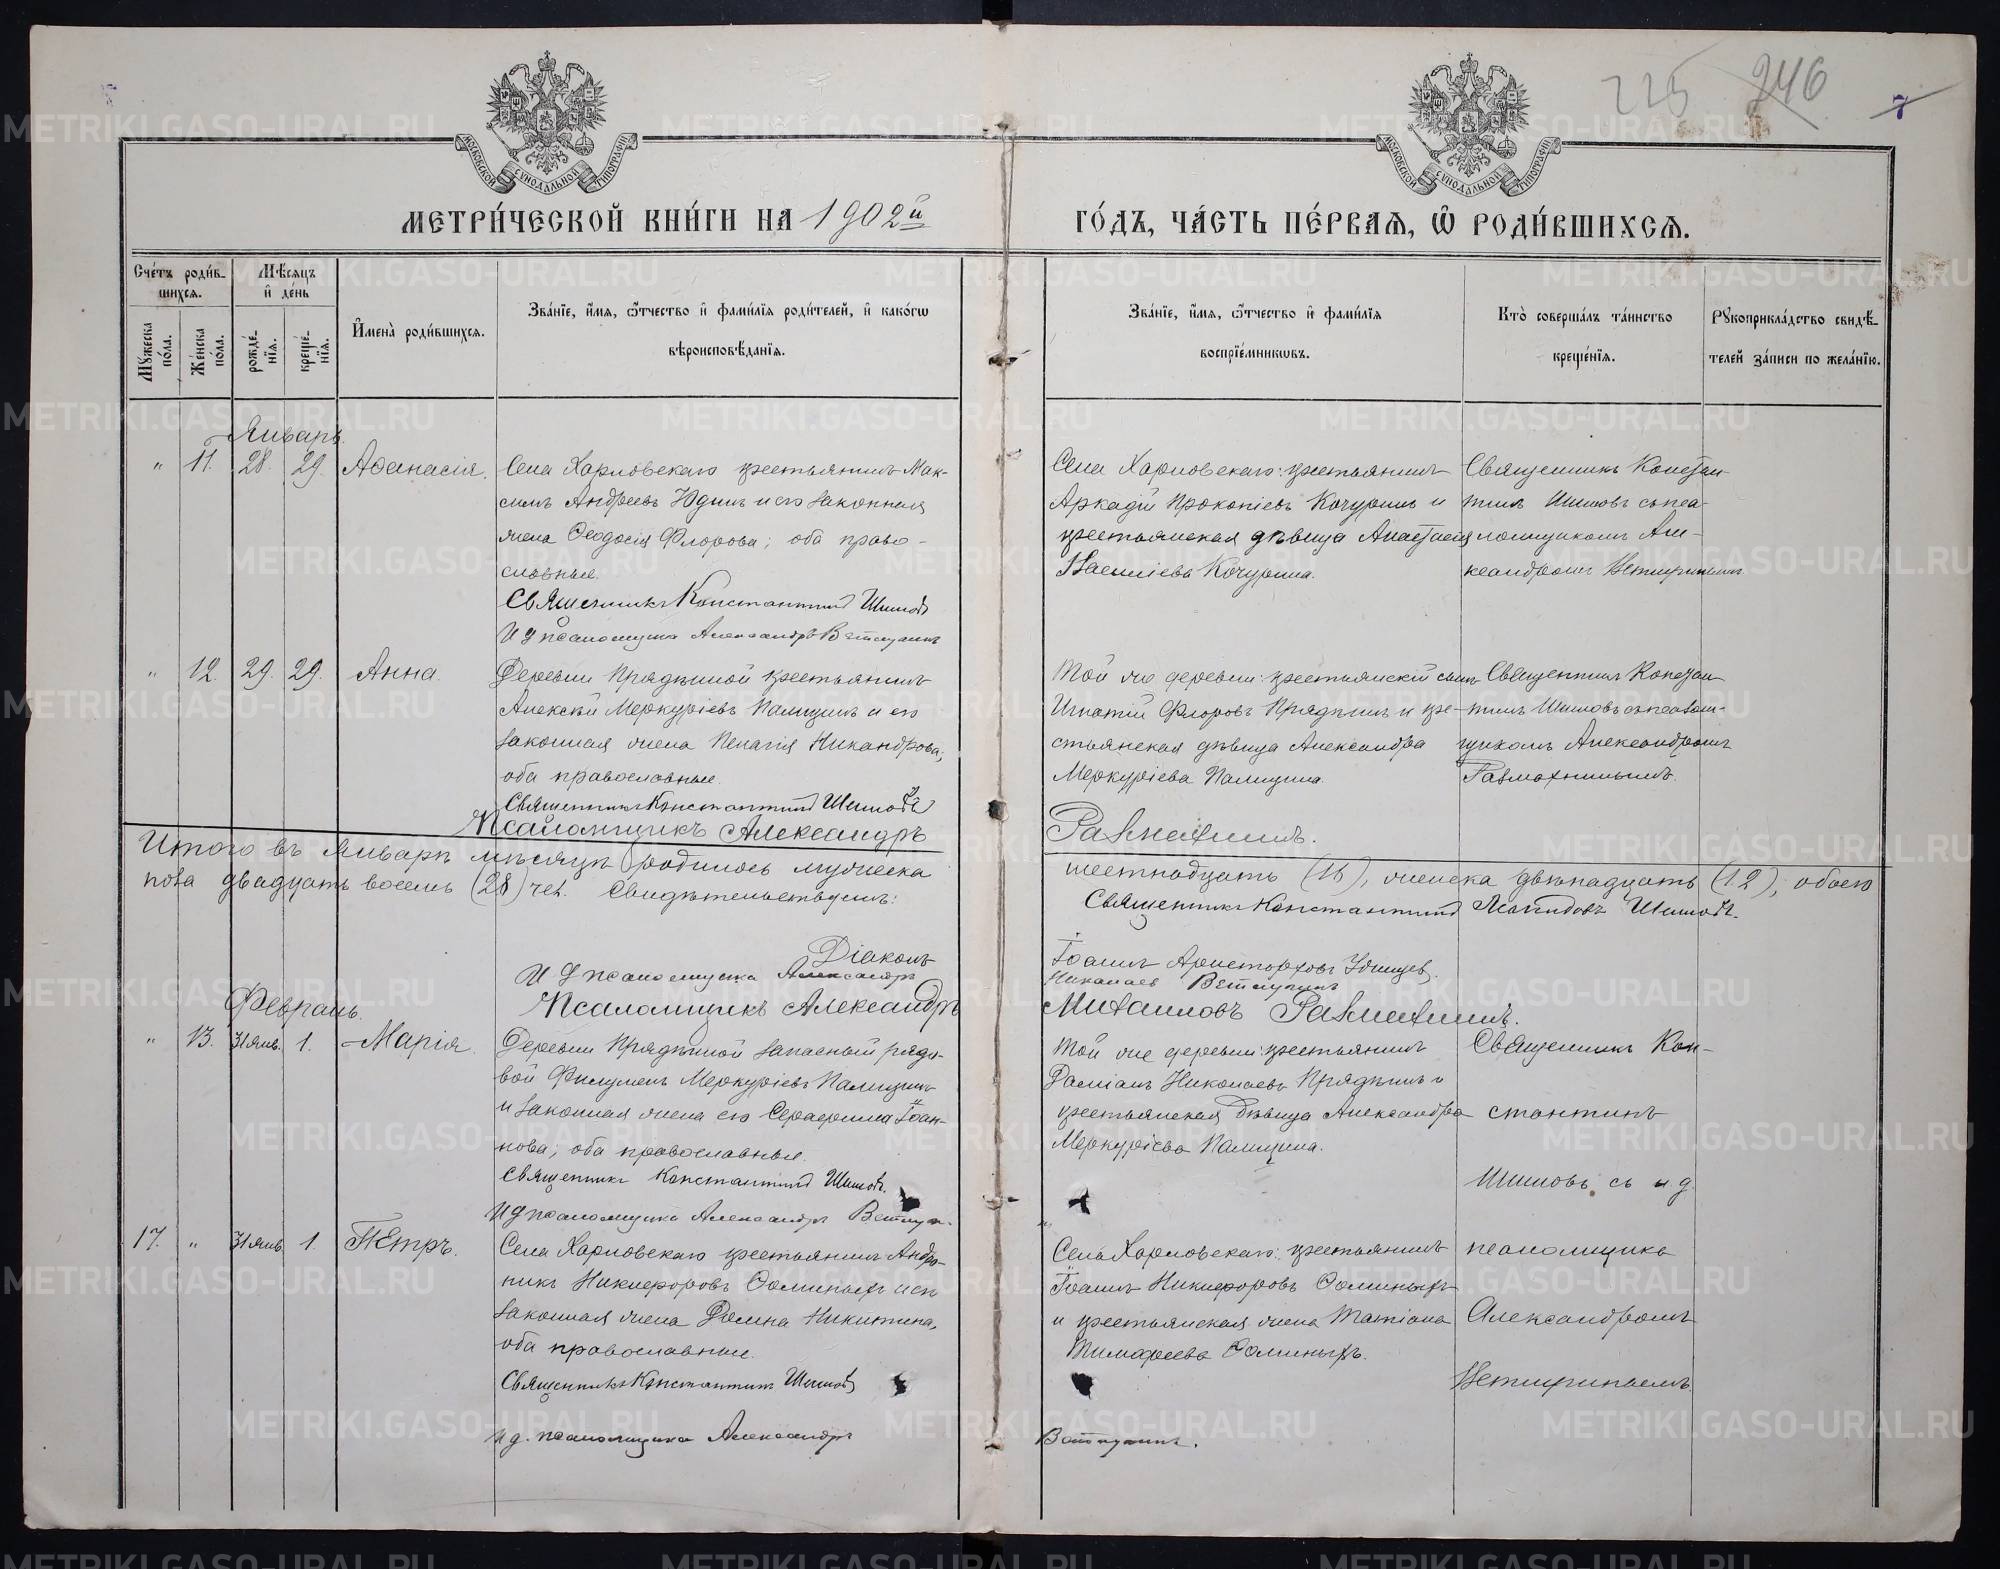 225 246 7
МОСКОВСКОЙ СУНОДАЛЬНОЙ ТИПОГРАФІИ
МОСКОВСКОЙ СУНОДАЛЬНОЙ ТИПОГРАФІИ
МЕТРИ́ЧЕСКОЙ КНИ́ГИ НА 1902й
ГО́ДЪ, ЧА́СТЬ ПЕ́РВАЯ, Ѡ҆ РОДИ́ВШИХСЯ.
Сче́тъ роди́в-
шихся.
Мѣ́сяцъ
и҆ де́нь
Мꙋ́жеска по́ла.
Же́нска по́ла.
рожде́-
нїя.
креще́-
нїя.
И҆мена̀ роди́вшихся.
Зва́нїе, и҆́мя, ѻ҆́тчество и҆ фами́лїя роди́телей, и҆ како́гѡ
вѣроисповѣ́данїя.
Зва́нїе, и҆́мя, ѻ҆́тчество и҆ фами́лїя
воспрїе́мникѡвъ.
Кто̀ соверша́лъ та́инство
креще́нїя.
Рꙋкоприкла́дство свидѣ́-
телей за́писи по жела́нїю.
Январь.
" 11. 28. 29. Аѳанасія.
Села Харловскаго крестьянинъ Мак-
симъ Андреевъ Юдинъ и его законная
жена Ѳеодосія Флорова; оба право-
славные.
Священникъ Константинъ Шишовъ
И д псаломщика Александръ Ветлугинъ
Села Харловскаго: крестьянинъ
Аркадій Прокопіевъ Кочуринъ и
крестьянская дѣвица Анастасія
Василіева Кочурина.
Священникъ Констан-
тинъ Шишовъ съ пса-
ломщикомъ Але-
ксандромъ
" 12. 29. 29. Анна.
Деревни Прядѣиной крестьянинъ
Алексѣй Меркуріевъ Палицинъ и его
законная жена Пелагія Никандрова,
оба православные.
Священникъ Константинъ Шишовъ
Псаломщикъ Александръ
Той же деревни: крестьянскій сынъ
Игнатій Флоровъ Прядѣинъ и кре-
стьянская дѣвица Александра
Меркуріева Палицина.
Священникъ Констан-
тинъ Шишовъ съ псалом-
щикомъ Александромъ
Итого въ Январѣ мѣсяцѣ родилось мужеска
шестнадцать (16), женска двѣнадцать (12), обоего
пола двадцать восемь (28) чел. Свидѣтельствуемъ:
Священникъ Константинъ Шишовъ.
Діаконъ
И д псаломщика Александръ
Николаевъ Ветлугинъ
Псаломщикъ Александръ
Михаиловъ
Февраль.
" 13. 31 янв. 1. Марія.
Деревни Прядѣиной запасный рядо-
вой Филуменъ Меркуріевъ Палицинъ
и законная жена его Серафима Іоан-
нова; оба православные.
Священникъ Константинъ Шишовъ.
И д псаломщика Александръ
Той же деревни: крестьянинъ
Даміанъ Николаевъ Прядѣинъ и
крестьянская дѣвица Александра
Меркуріева Палицина.
Священникъ Кон-
стантинъ
Шишовъ съ и. д.
17. " 31 янв. 1. Петръ.
Села Харловскаго крестьянинъ Андро-
никъ Никифоровъ Ѳоминыхъ и его
законная жена Домна Никитина,
оба православные.
Священникъ Константинъ Шишовъ
и д. псаломщика Александръ
Села Харловскаго: крестьянинъ
Іоаннъ Никифоровъ Ѳоминыхъ
и крестьянская жена Татіана
Тимофеева Ѳоминыхъ.
псаломщика
Александромъ
Ветлугинъ.